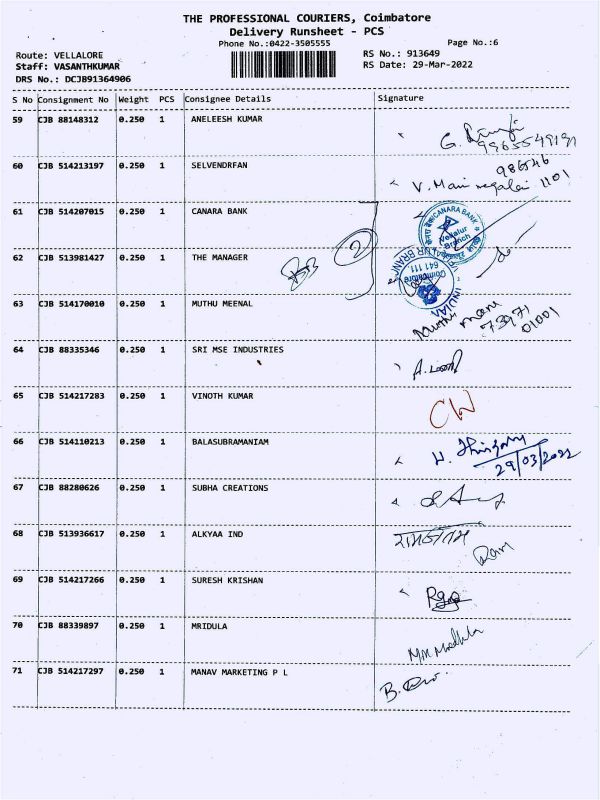 THE PROFESSIONAL COURIERS, Coimbatore
Delivery Runsheet - PCS
Phone No.:0422-3505555
Page No.:6
Route: VELLALORE
RS No.: 913649
Staff: VASANTHKUMAR
RS Date: 29-Mar-2022
DRS No.: DCJB91364906
S No Consignment No Weight PCS Consignee Details Signature
59 CJB 88148312 0.250 1 ANELEESH KUMAR
G.
9965549191
60 CJB 514213197 0.250 1 SELVENDRFAN
986546
V. 1101
61 CJB 514207015 0.250 1 CANARA BANK
CANARA BANK
Vellalur
Branch
62 CJB 513981427 0.250 1 THE MANAGER
2
641 111
Coimbatore
INDIAN
63 CJB 514170010 0.250 1 MUTHU MEENAL
73971
01001
64 CJB 88335346 0.250 1 SRI MSE INDUSTRIES
A.
65 CJB 514217283 0.250 1 VINOTH KUMAR
66 CJB 514110213 0.250 1 BALASUBRAMANIAM
29/03/2022
67 CJB 88280626 0.250 1 SUBHA CREATIONS
68 CJB 513936617 0.250 1 ALKYAA IND
Ram
69 CJB 514217266 0.250 1 SURESH KRISHAN
70 CJB 88339897 0.250 1 MRIDULA
71 CJB 514217297 0.250 1 MANAV MARKETING P L
B.